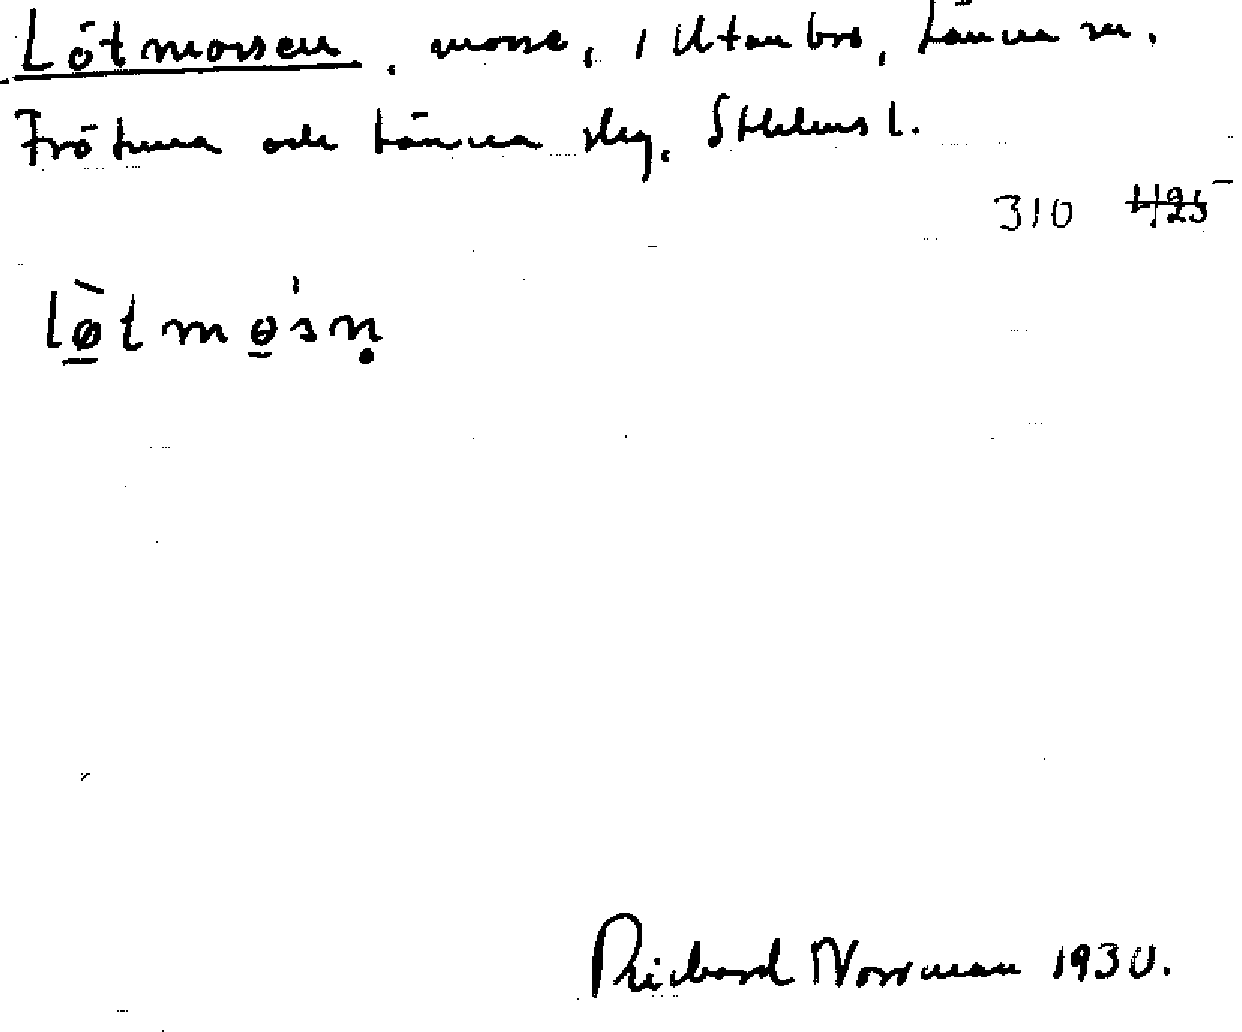 Lötmossen, mosse, i Utanbro, Länna sn.
Frötuna och Länna skg. Sthlms l.
310 1125
lø̀tmɵ'sn̥
Richard Norrman 1930.